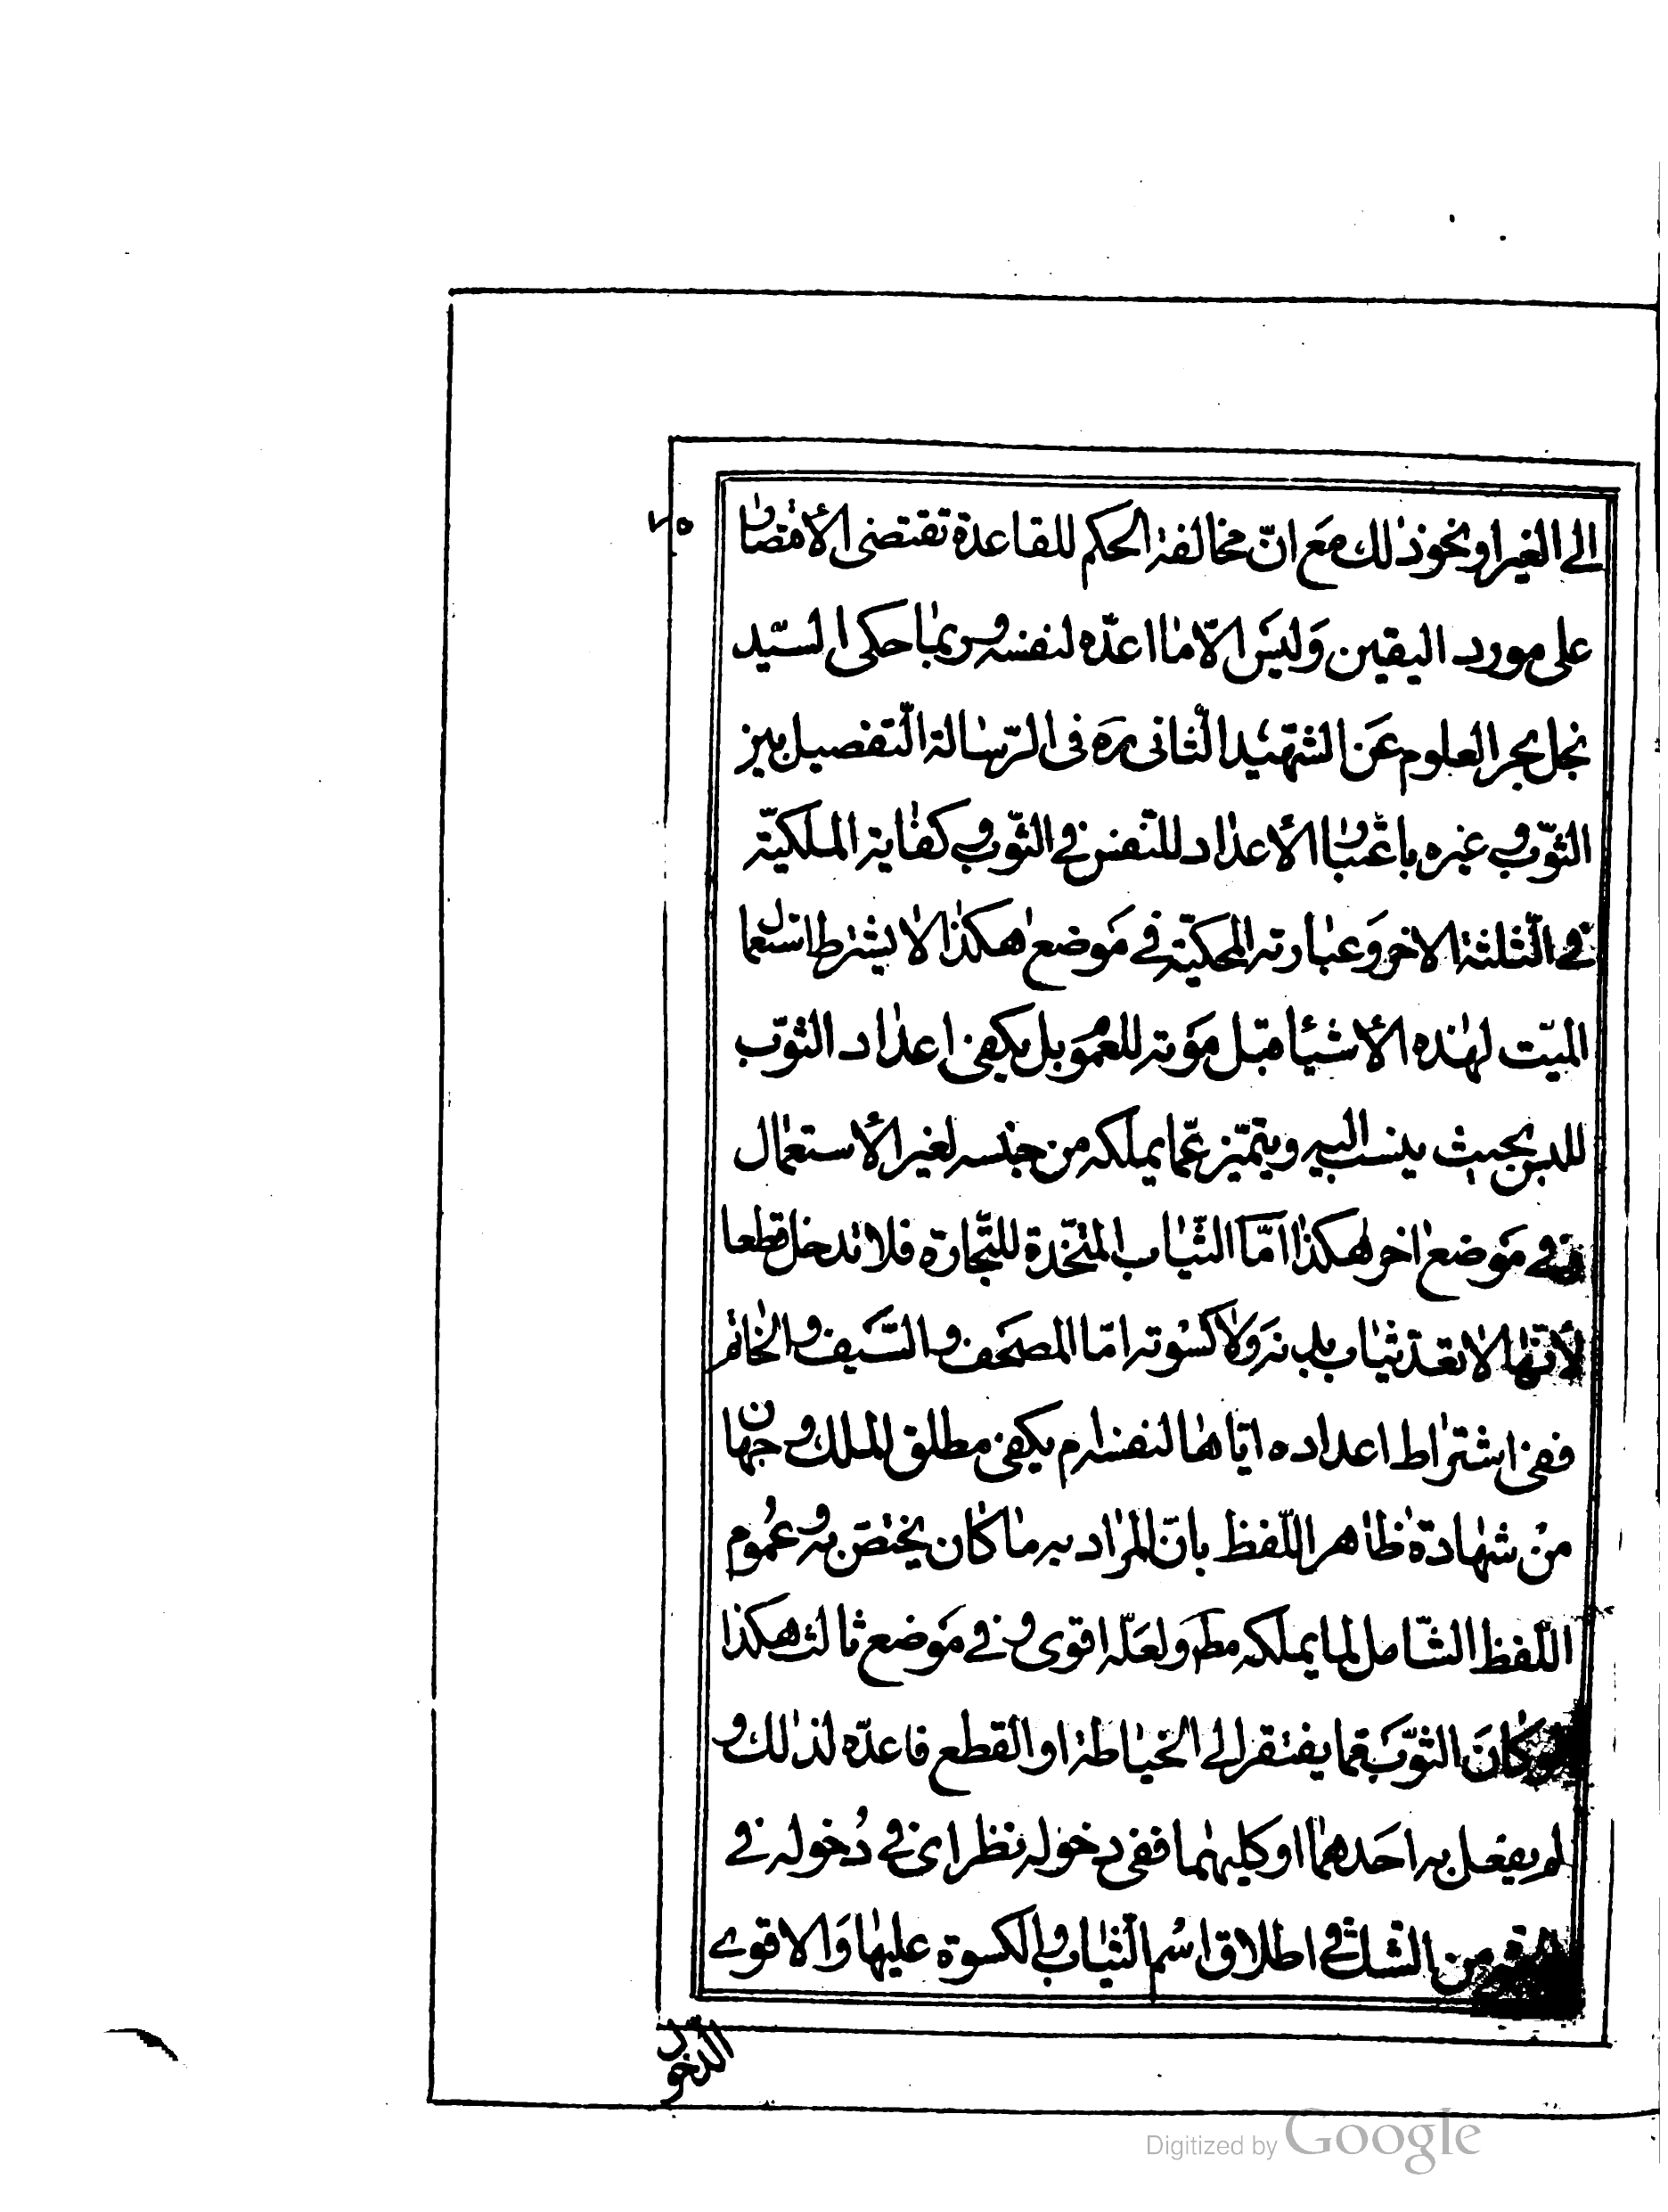 ٧٥
الى الغير او نحو ذلك مع انّ مخالفة الحكم للقاعدة تقتضى الأقتصار
على مورد اليقين وليس الّا ما اعدّه لنفسه و ربما حكى السيّد
نجل بحر العلوم عن الشهيد الثانى ره فى الرّسالة التفصيل بين
الثوب و غيره باعتبار الأعداد للنفس في الثوب و كفاية الملكيّة
في الثلثة الاخر و عبارته المحكيّة في موضع هكذا لا يشترط استعمال
الميّت لهذه الأشيأ قبل موته للعموم بل يكفى اعداد الثوب
للبس بحيث ينسب اليه و يتميّز عمّا يملكه من جنسه لغير الأستعمال
و في موضع اخر هكذا امّا الثياب المتخذة للتجارة فلا تدخل قطعا
لأنها لا تعد ثياب بدنه ولا كسوته امّا المصحف و السّيف و الخاتم
ففى اشتراط اعداده ايّاها لنفسه ام يكفى مطلق الملك وجهان
من شهادة ظاهر اللّفظ بانّ المراد به ما كان يختص به و عموم
اللّفظ الشامل لما يملكه مط ولعلّه اقوى و في موضع ثالث هكذا
لو كان الثوب مما يفتقر الى الخياطة او القطع فاعدّه لذلك و
لم يفعل به احدهما او كليهما ففى دخوله نظر اى في دُخوله في
من الشك في اطلاق اسم الثياب و الكسوة عليها و الاقوى
الدخول
Digitized by Google